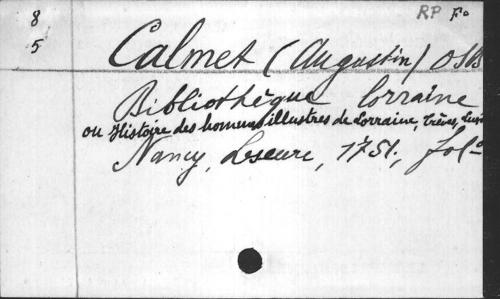 8
5
RP Fo
Calmet (Augustin) OSB
Bibliothèque lorraine
ou Histoire des hommes illustres de Lorraine, Trèves,
Nancy, Leseure, 1751, fol°